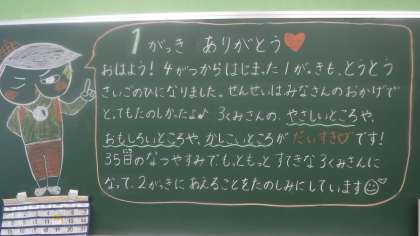 1がっき ありがとう♡
おはよう！ 4がつからはじまった1がっきも、とうとう
さいごのひになりました。せんせいはみなさんのおかげで
とってもたのしかったよ♪ 3くみさんの、やさしいところや、
おもしろいところや、かしこいところが だいすき♡です！
35日のなつやすみで、もっともっと すてきな3くみさんに
なって、2がっきに あえることをたのしみにしています☺♡